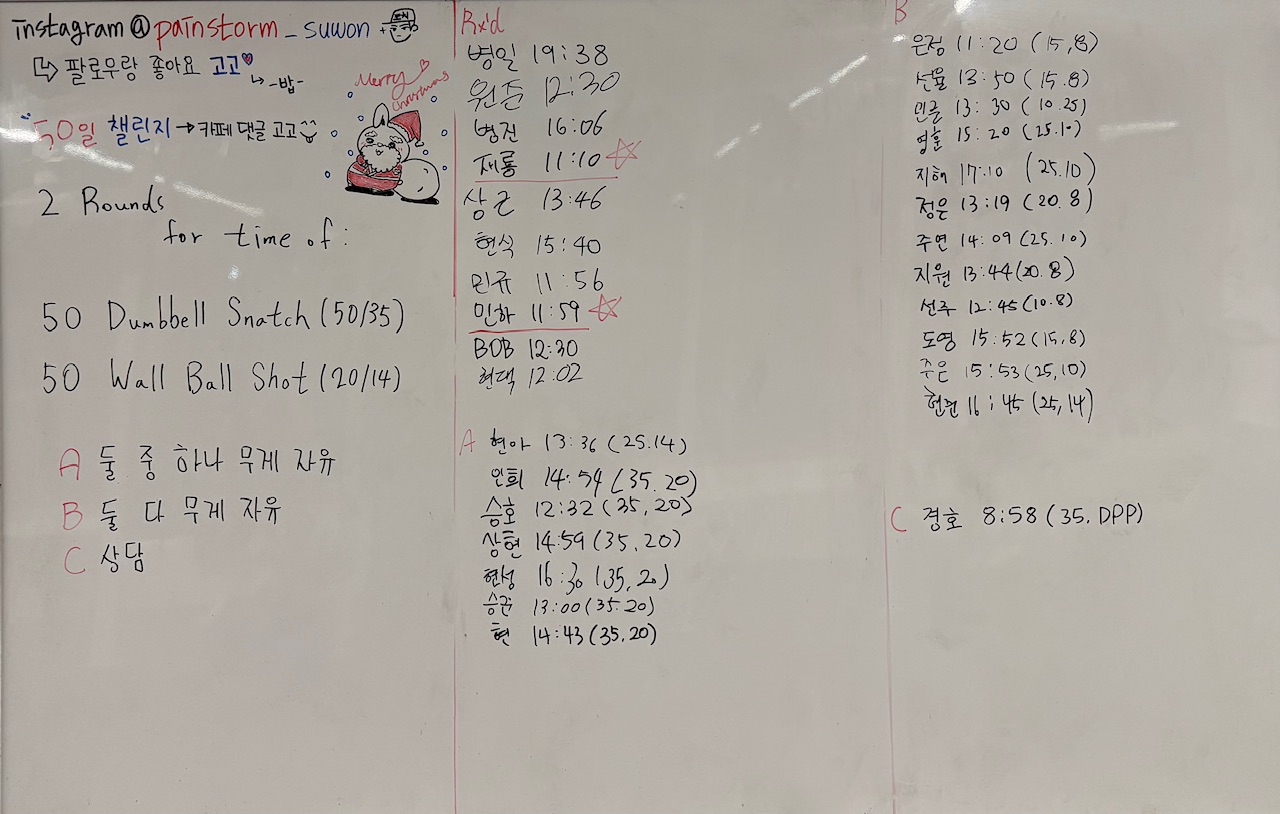 instagram@painstorm_suwon +
↳ 팔로우랑 좋아요 고고♥
↳ -밥-
Merry
Christmas
"50일 챌린지 → 카페 댓글 고고
2 Rounds
for time of:
50 Dumbbell Snatch (50/35)
50 Wall Ball Shot (20/14)
A 둘 중 하나 무게 자유
B 둘 다 무게 자유
C 상담
Rx'd
병일 19:38
원준 12:30
병진 16:06
재룡 11:10 ☆
상근 13:46
현식 15:40
민규 11:56
민하 11:59 ☆
BOB 12:30
현택 12:02
A 현아 13:36 (25.14)
인희 14:54 (35.20)
승호 12:32 (35,20)
상현 14:59 (35,20)
현성 16:30 (35,20)
승균 13:00 (35.20)
현 14:43 (35.20)
B
은정 11:20 (15,8)
선율 13:50 (15.8)
13:30 (10.25)
영훈 15:20 (25.10)
지해 17:10 (25.10)
정은 13:19 (20.8)
주연 14:09 (25.10)
지원 13:44 (20.8)
선주 12:45 (10.8)
도영 15:52 (15,8)
주은 15:53 (25,10)
현준 16:45 (25,14)
C 경호 8:58 (35. DPP)